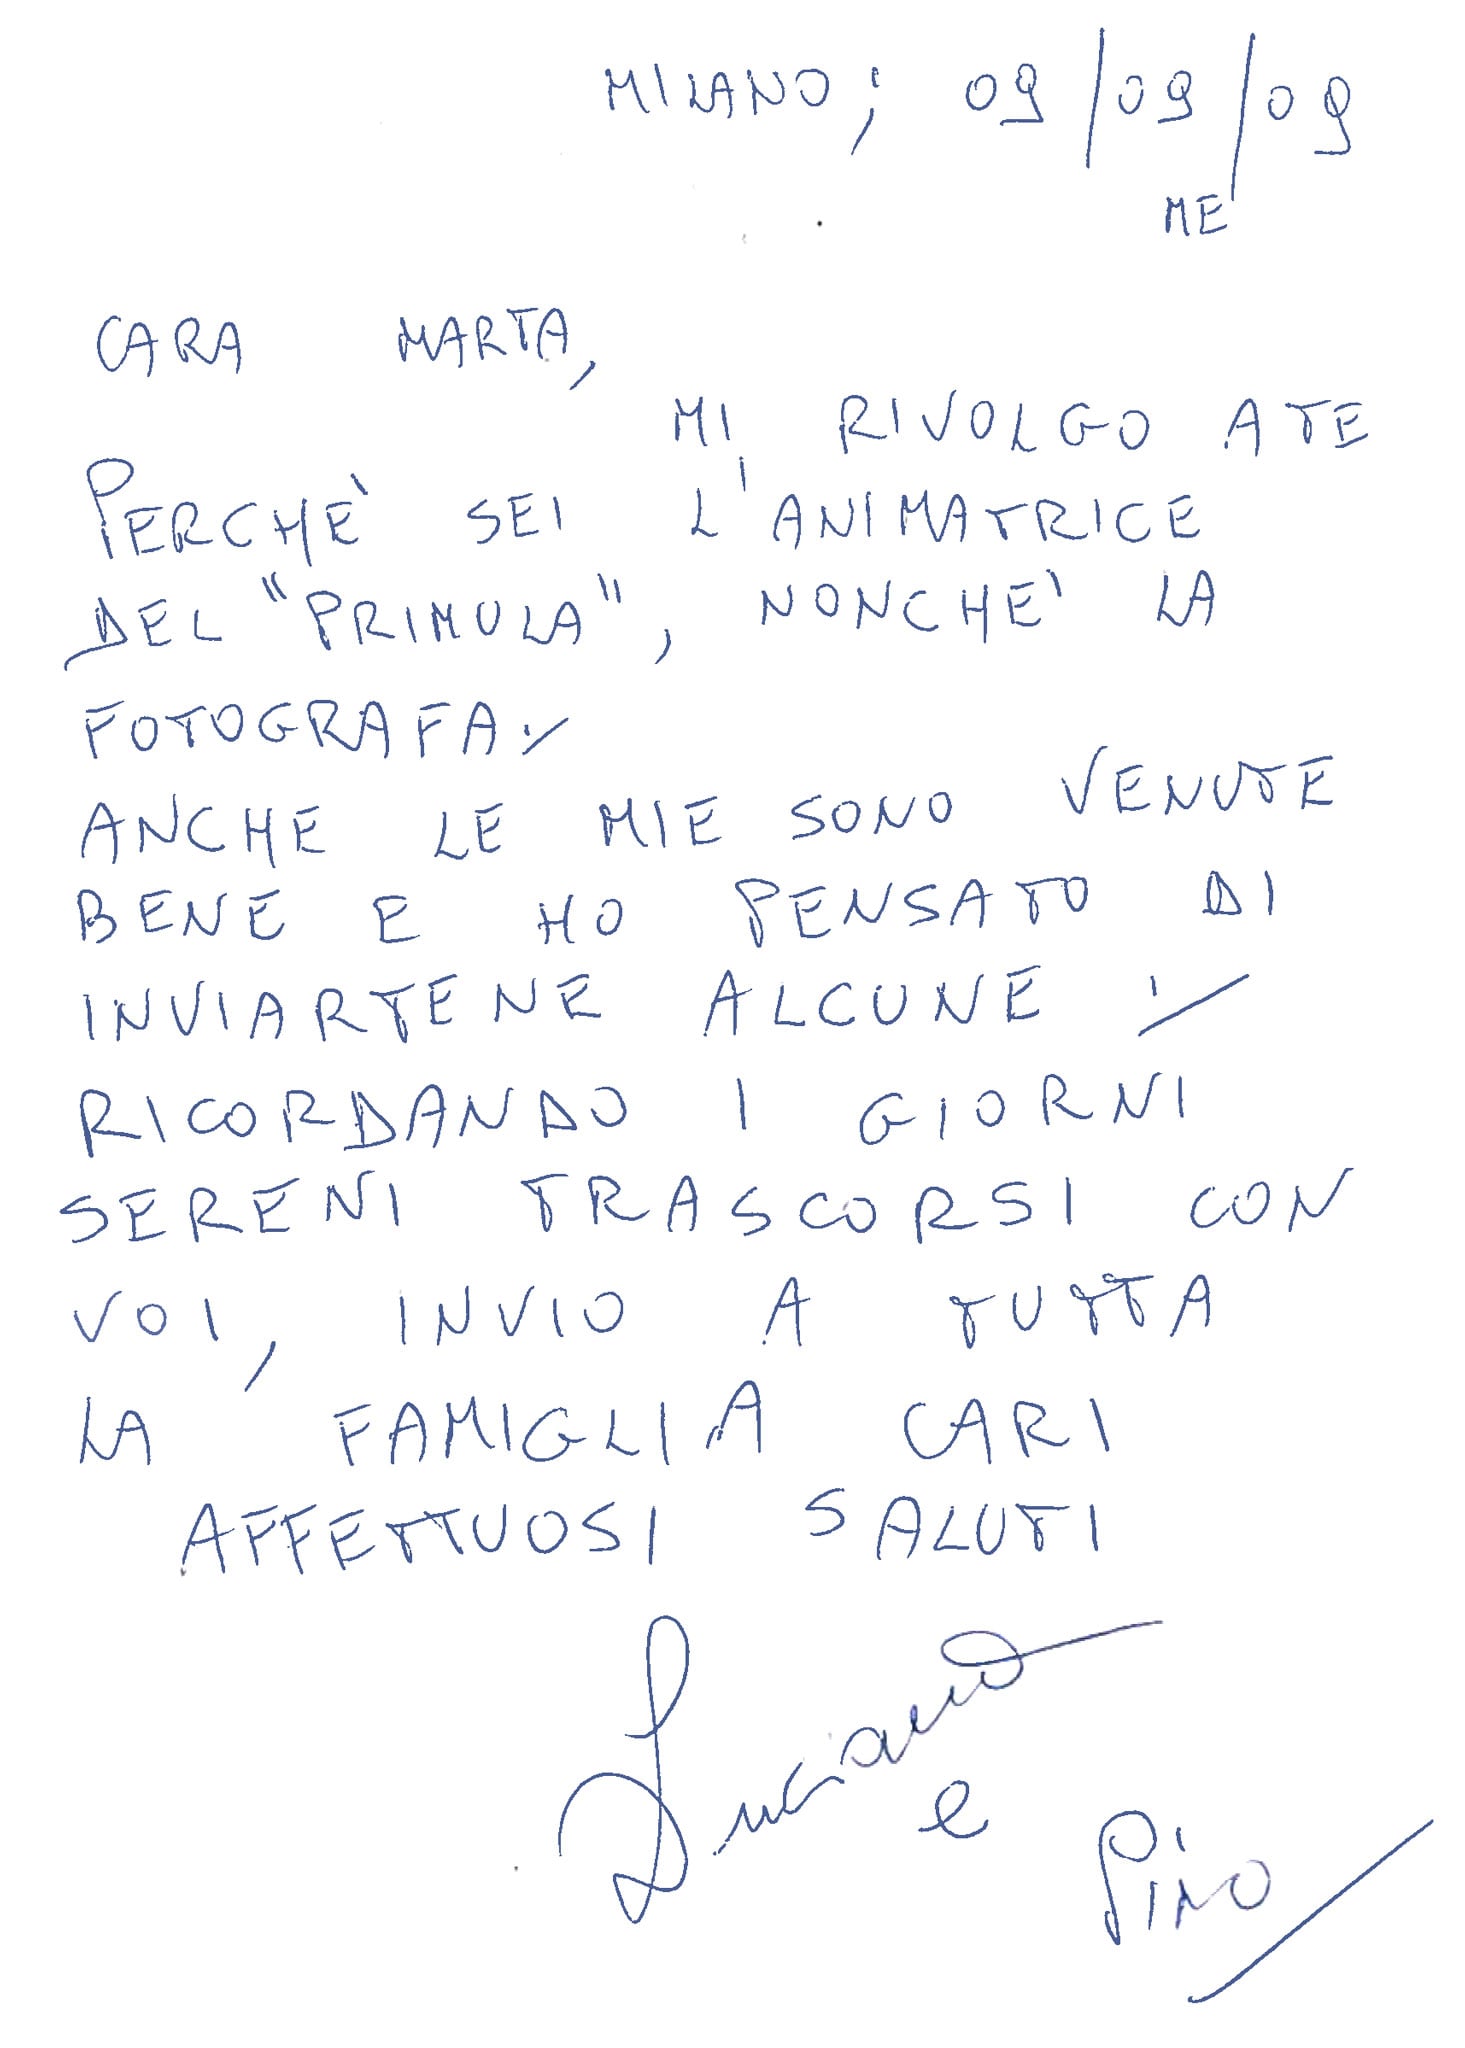 MILANO; 09/09/09
ME
CARA MARTA,
MI RIVOLGO A TE
PERCHE' SEI L'ANIMATRICE
DEL "PRIMULA", NONCHE' LA
FOTOGRAFA.
ANCHE LE MIE SONO VENUTE
BENE E HO PENSATO DI
INVIARTENE ALCUNE.
RICORDANDO I GIORNI
SERENI TRASCORSI CON
VOI, INVIO A TUTTA
LA FAMIGLIA CARI
AFFETTUOSI SALUTI
Luciano
e
Pino